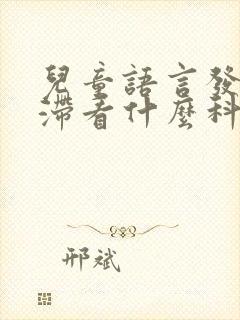 兒童語言發
滯看什麼科
邢斌